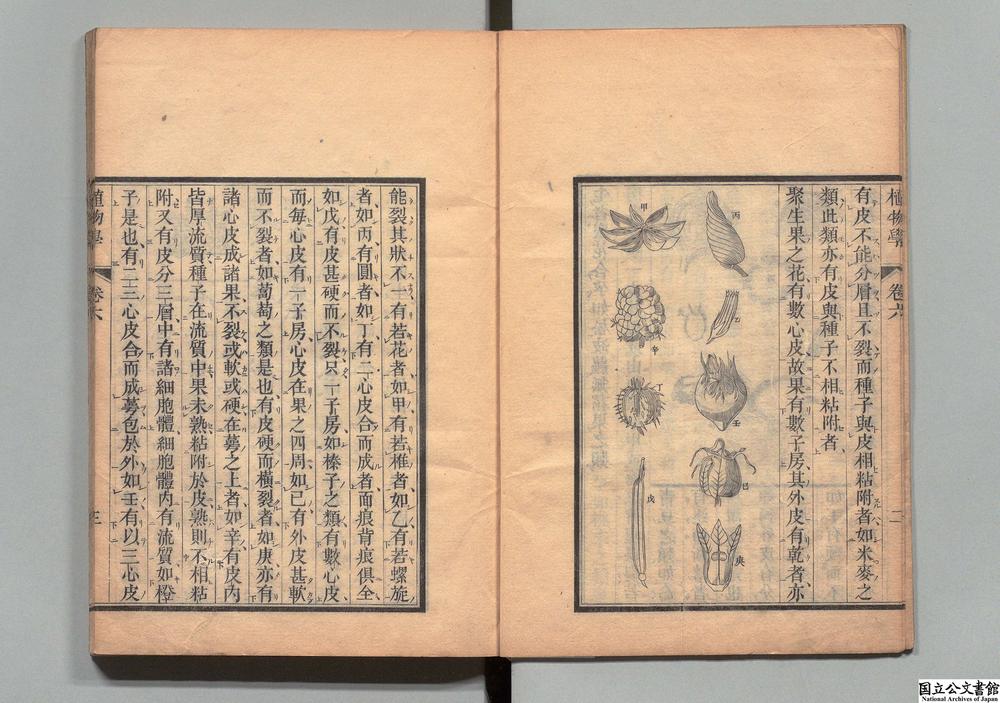 植物學 卷六 二
有皮不能分層且不裂而種子與皮相粘附者如米麥之
類此類亦有皮與種子不相粘附者
聚生果之花有數心皮故果有數子房其外皮有乾者亦
丙
甲
乙
辛
壬
丁
己
戊
庚
能裂其狀不一有若花者如甲有若椎者如乙有若螺旋
者如丙有圓者如丁有二心皮合而成者而痕背痕俱全
如戊有皮甚硬而不裂只一子房如榛子之類有數心皮
而每心皮有一子房心皮在果之四周如已有外皮甚軟
而不裂者如蔔萄之類是也有皮硬而橫裂者如庚亦有
諸心皮成諸果不裂或軟或硬在萼之上者如辛有皮內
皆厚流質種子在流質中果未熟粘附於皮熟則不相粘
附又有皮分三層中有諸細胞體細胞體內有流質如橙
子是也有二三心皮合而成萼包於外如壬有以三心皮
植物學 卷六 三
国立公文書館
National Archives of Japan